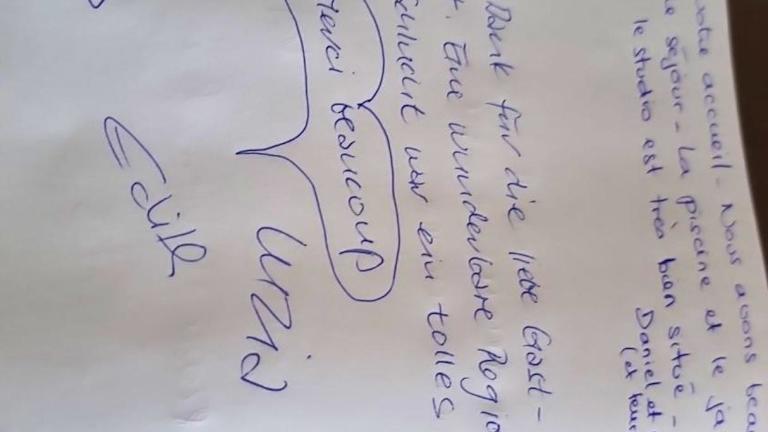 votre accueil - Nous avons beau
séjour - La piscine et le ja
le studio est très bien situé -
Daniel et
(et leur
Dank für die liebe Gast-
Eine wunderbare Regio
war ein tolles
Merci beaucoup
Edith